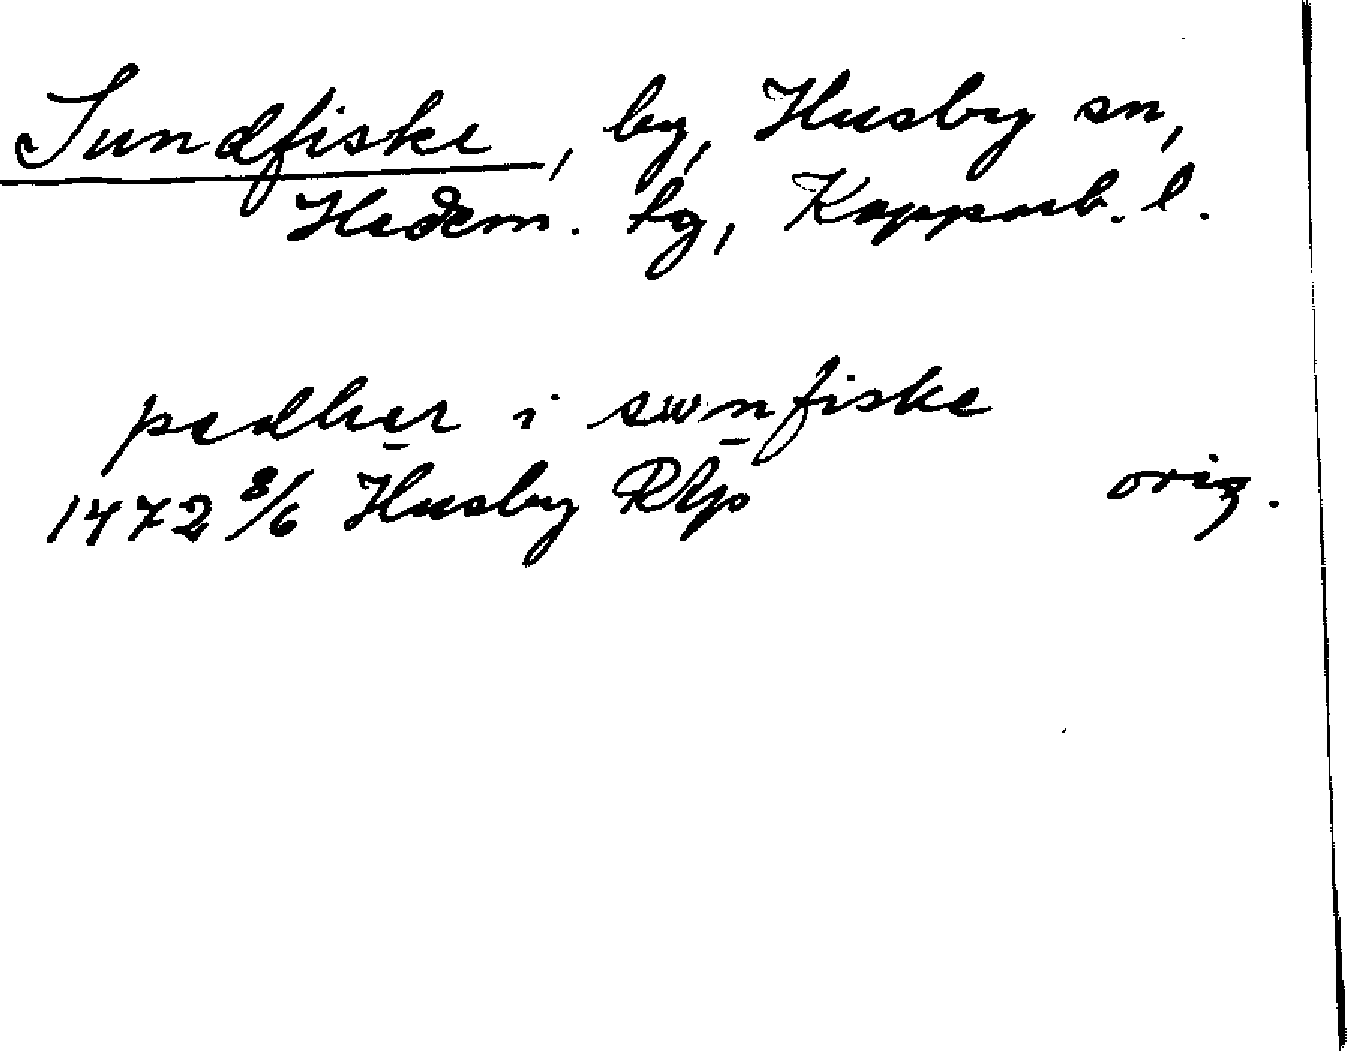 Sundfiske, by, Husby sn,
Hedem. tg, Kopparb. l.
pedher i swnfiske
1472 8/6 Husby RAp orig.